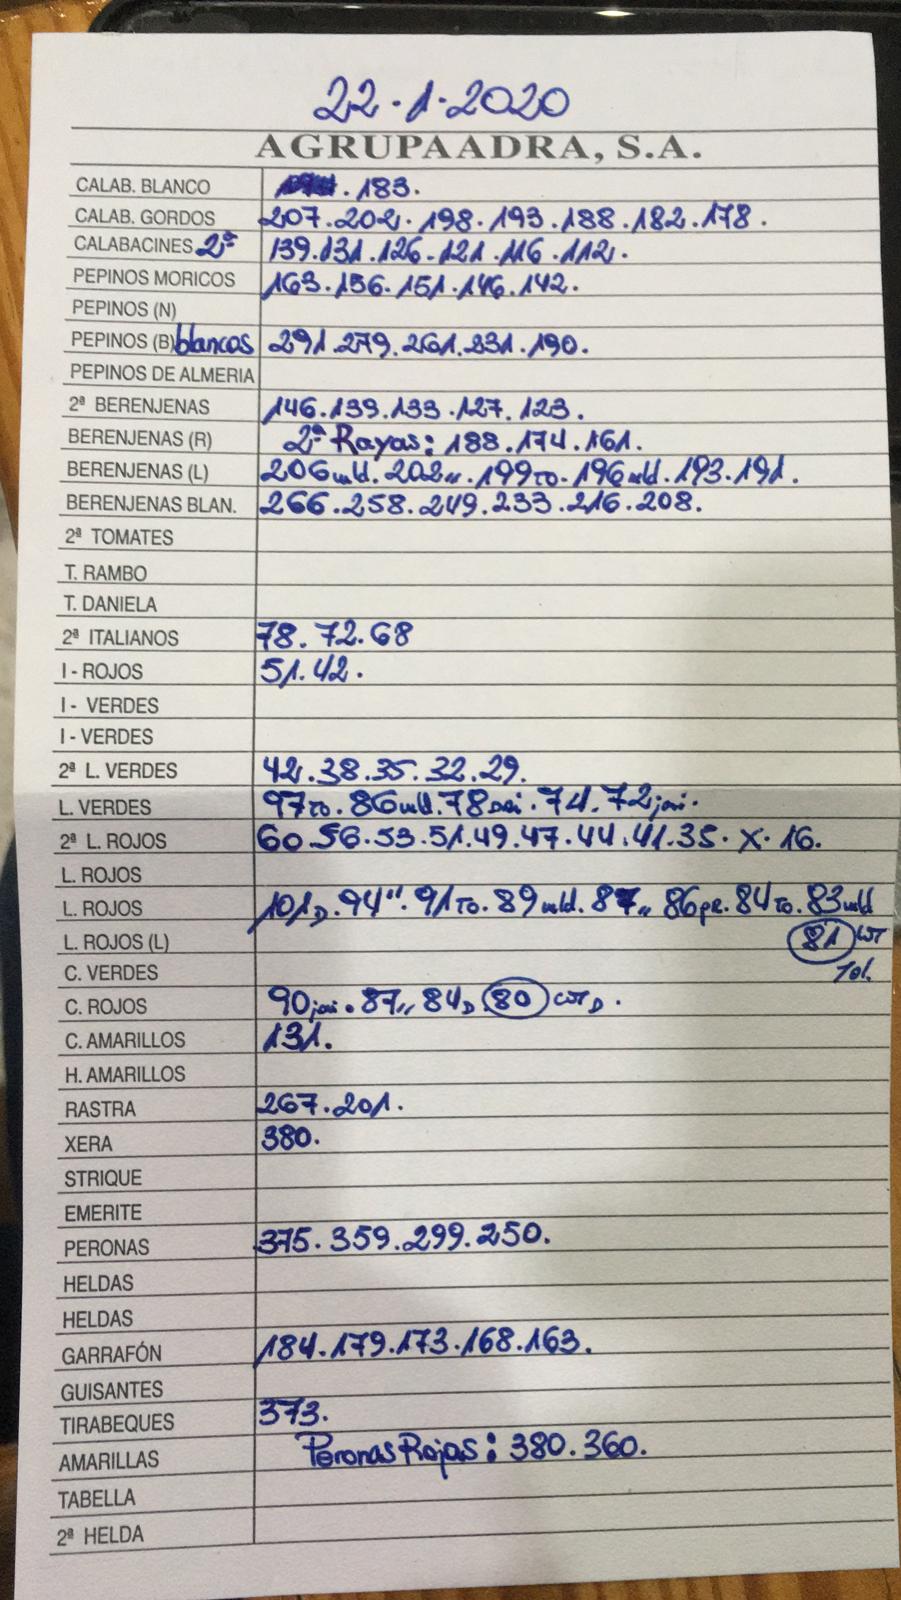 22.1.2020
AGRUPAADRA, S.A.
CALAB. BLANCO . 183.
CALAB. GORDOS 207.202.198.193.188.182.178.
CALABACINES 2ª 139.131.126.121.116.112.
PEPINOS MORICOS 163.156.151.146.142.
PEPINOS (N)
PEPINOS (B) blancos 291.279.261.231.190.
PEPINOS DE ALMERIA
2ª BERENJENAS 146.139.133.127.123.
BERENJENAS (R) 2ª Rayas: 188.174.161.
BERENJENAS (L) 206 mld. 202 ,, . 199 TO. 196 mld. 193.191.
BERENJENAS BLAN. 266.258.249.233.216.208.
2ª TOMATES
T. RAMBO
T. DANIELA
2ª ITALIANOS 78.72.68
I - ROJOS 51.42.
I - VERDES
I - VERDES
2ª L. VERDES 42.38.35.32.29.
L. VERDES 97 TO. 86 mld. 78 . 74. 72 joi.
2ª L. ROJOS 60.56.53.51.49.47.44.41.35. X. 16.
L. ROJOS
L. ROJOS 101 D. 94 ". 91 TO. 89 mld. 87 ,, 86 pr. 84 TO. 83 mld
L. ROJOS (L) 81
C. VERDES
C. ROJOS 90 joi. 87 ,, 84 D 80 D.
C. AMARILLOS 131.
H. AMARILLOS
RASTRA 267.201.
XERA 380.
STRIQUE
EMERITE
PERONAS 375.359.299.250.
HELDAS
HELDAS
GARRAFÓN 184.179.173.168.163.
GUISANTES
TIRABEQUES 373.
AMARILLAS Peronas Rojas: 380.360.
TABELLA
2ª HELDA